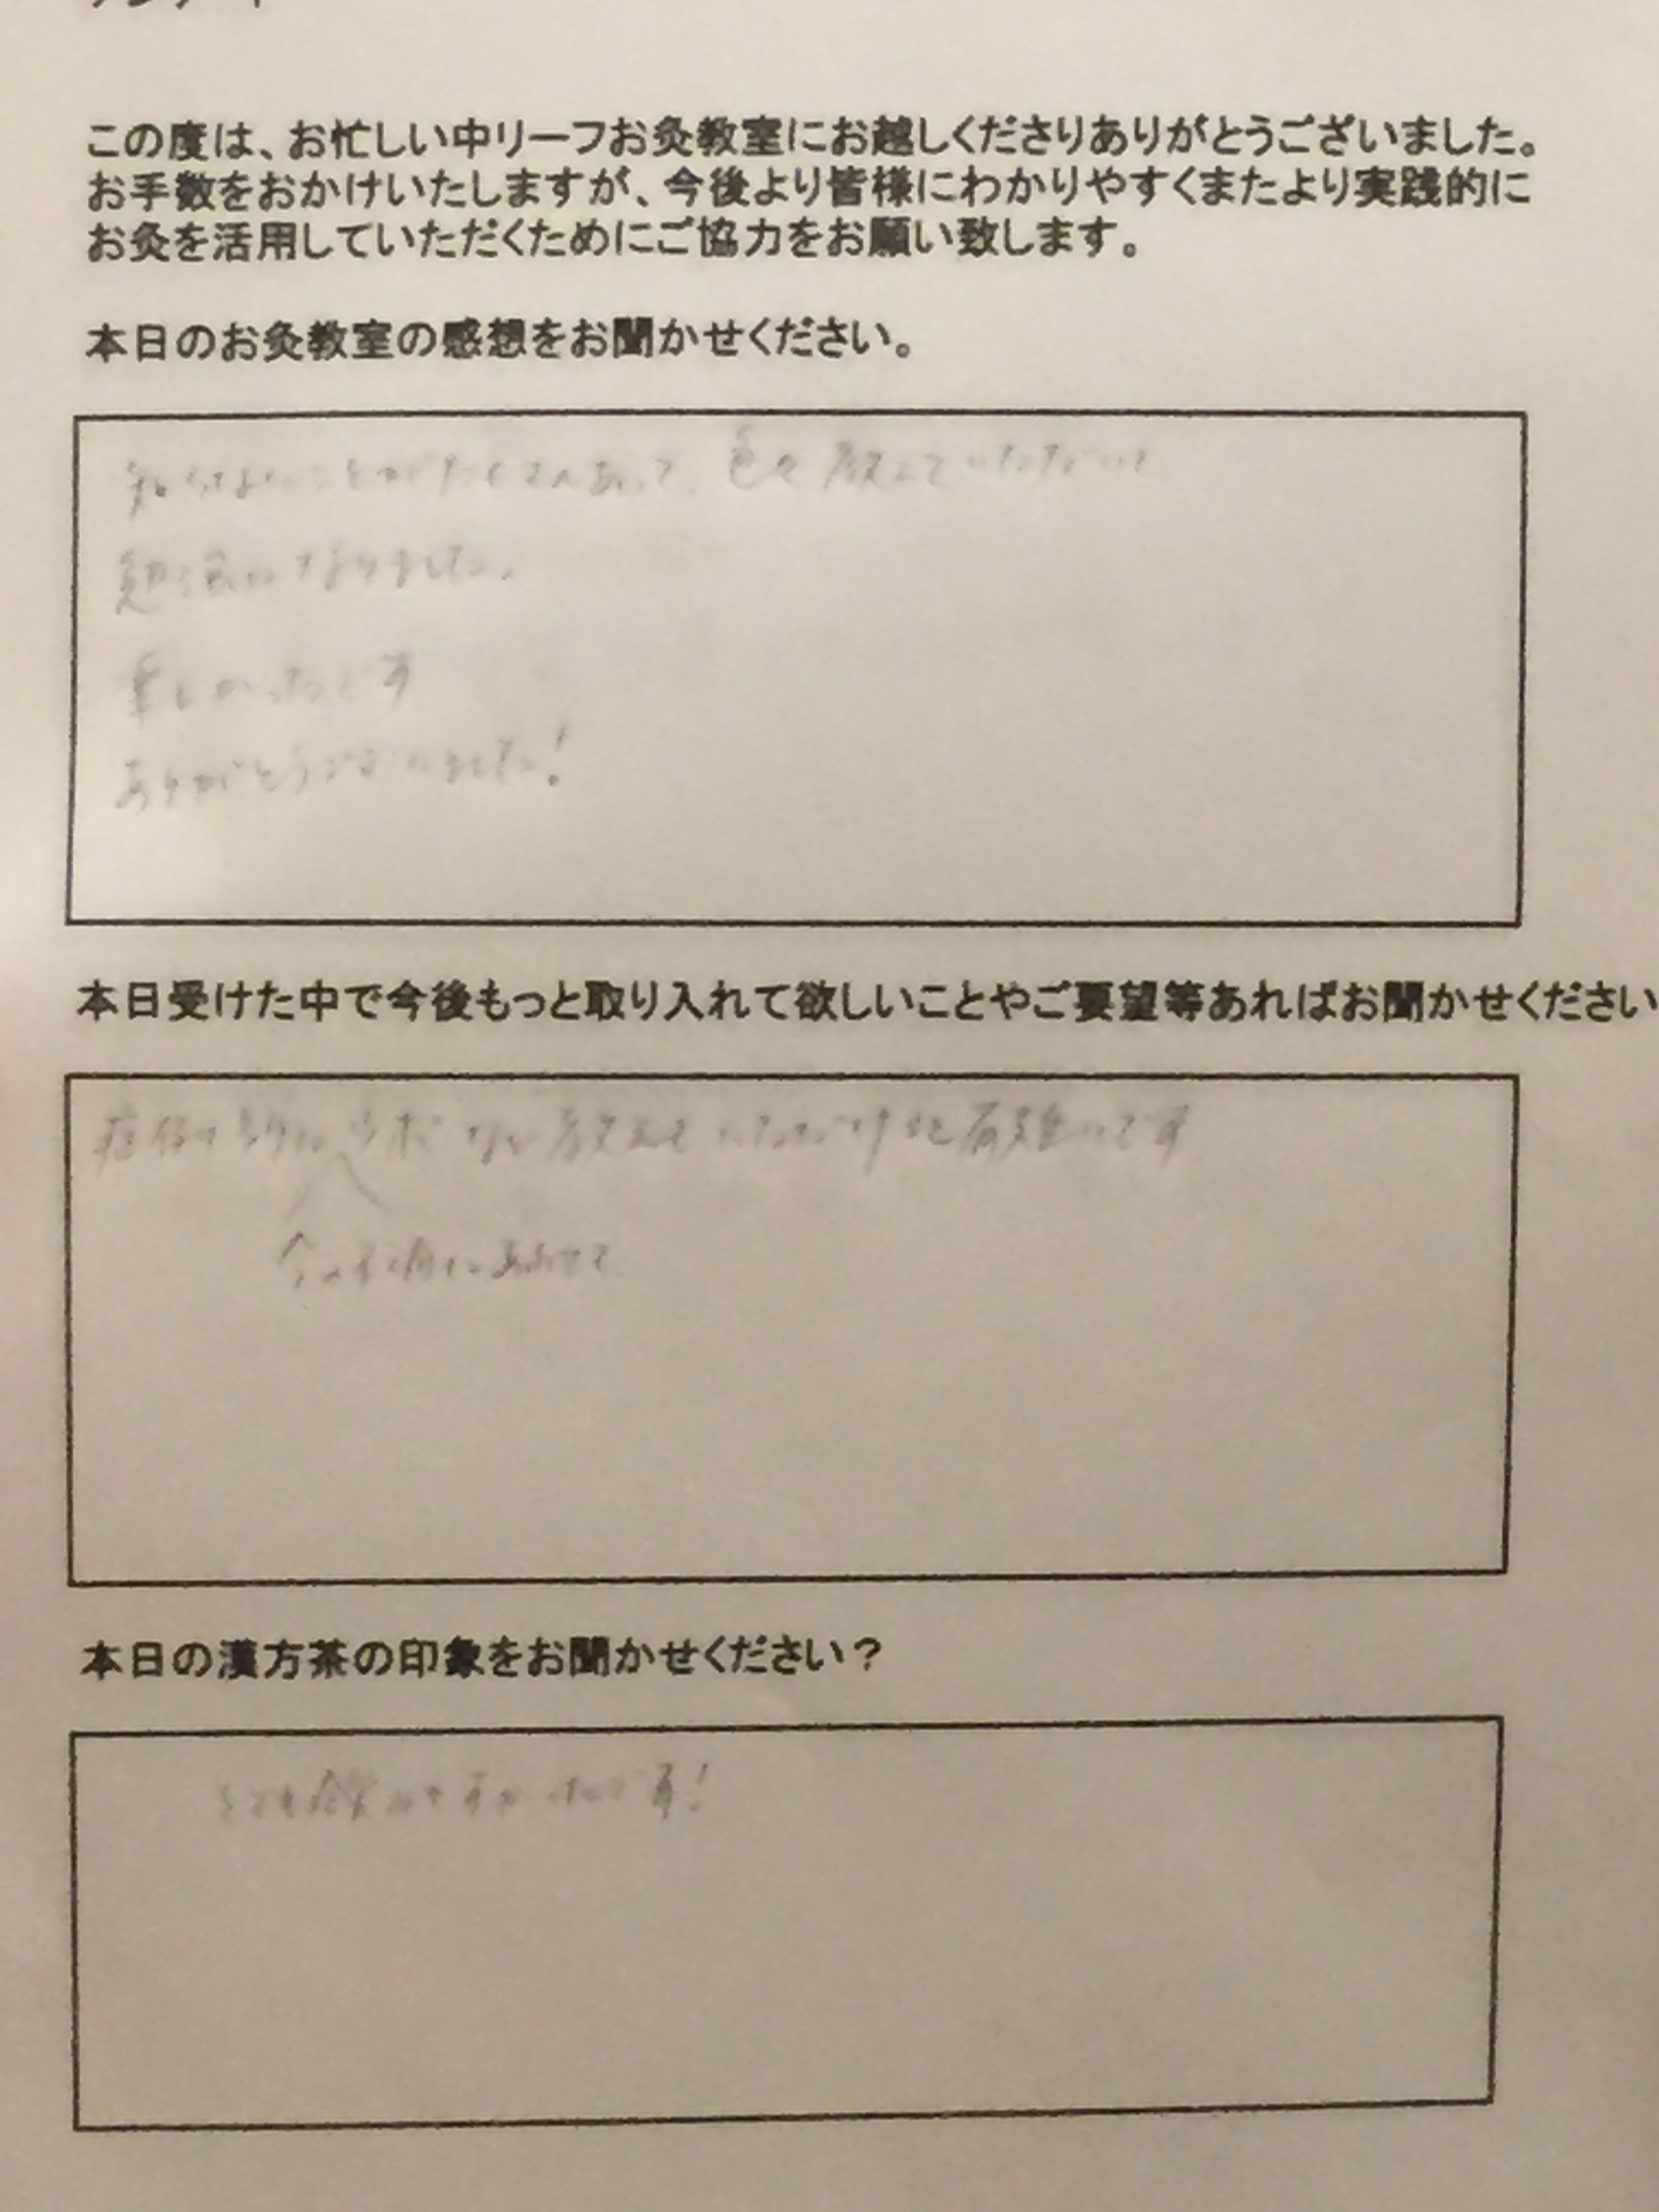 アンケート
この度は、お忙しい中リーフお灸教室にお越しくださりありがとうございました。
お手数をおかけいたしますが、今後より皆様にわかりやすくまたより実践的に
お灸を活用していただくためにご協力をお願い致します。
本日のお灸教室の感想をお聞かせください。
知らないことがたくさんあって、色々教えていただいて
勉強になりました。
楽しかったです
ありがとうございました!
本日受けた中で今後もっと取り入れて欲しいことやご要望等あればお聞かせください
ツボ など教えて いただけると有難いです
あわせて
本日の漢方茶の印象をお聞かせください?
とても飲みやすかったです!